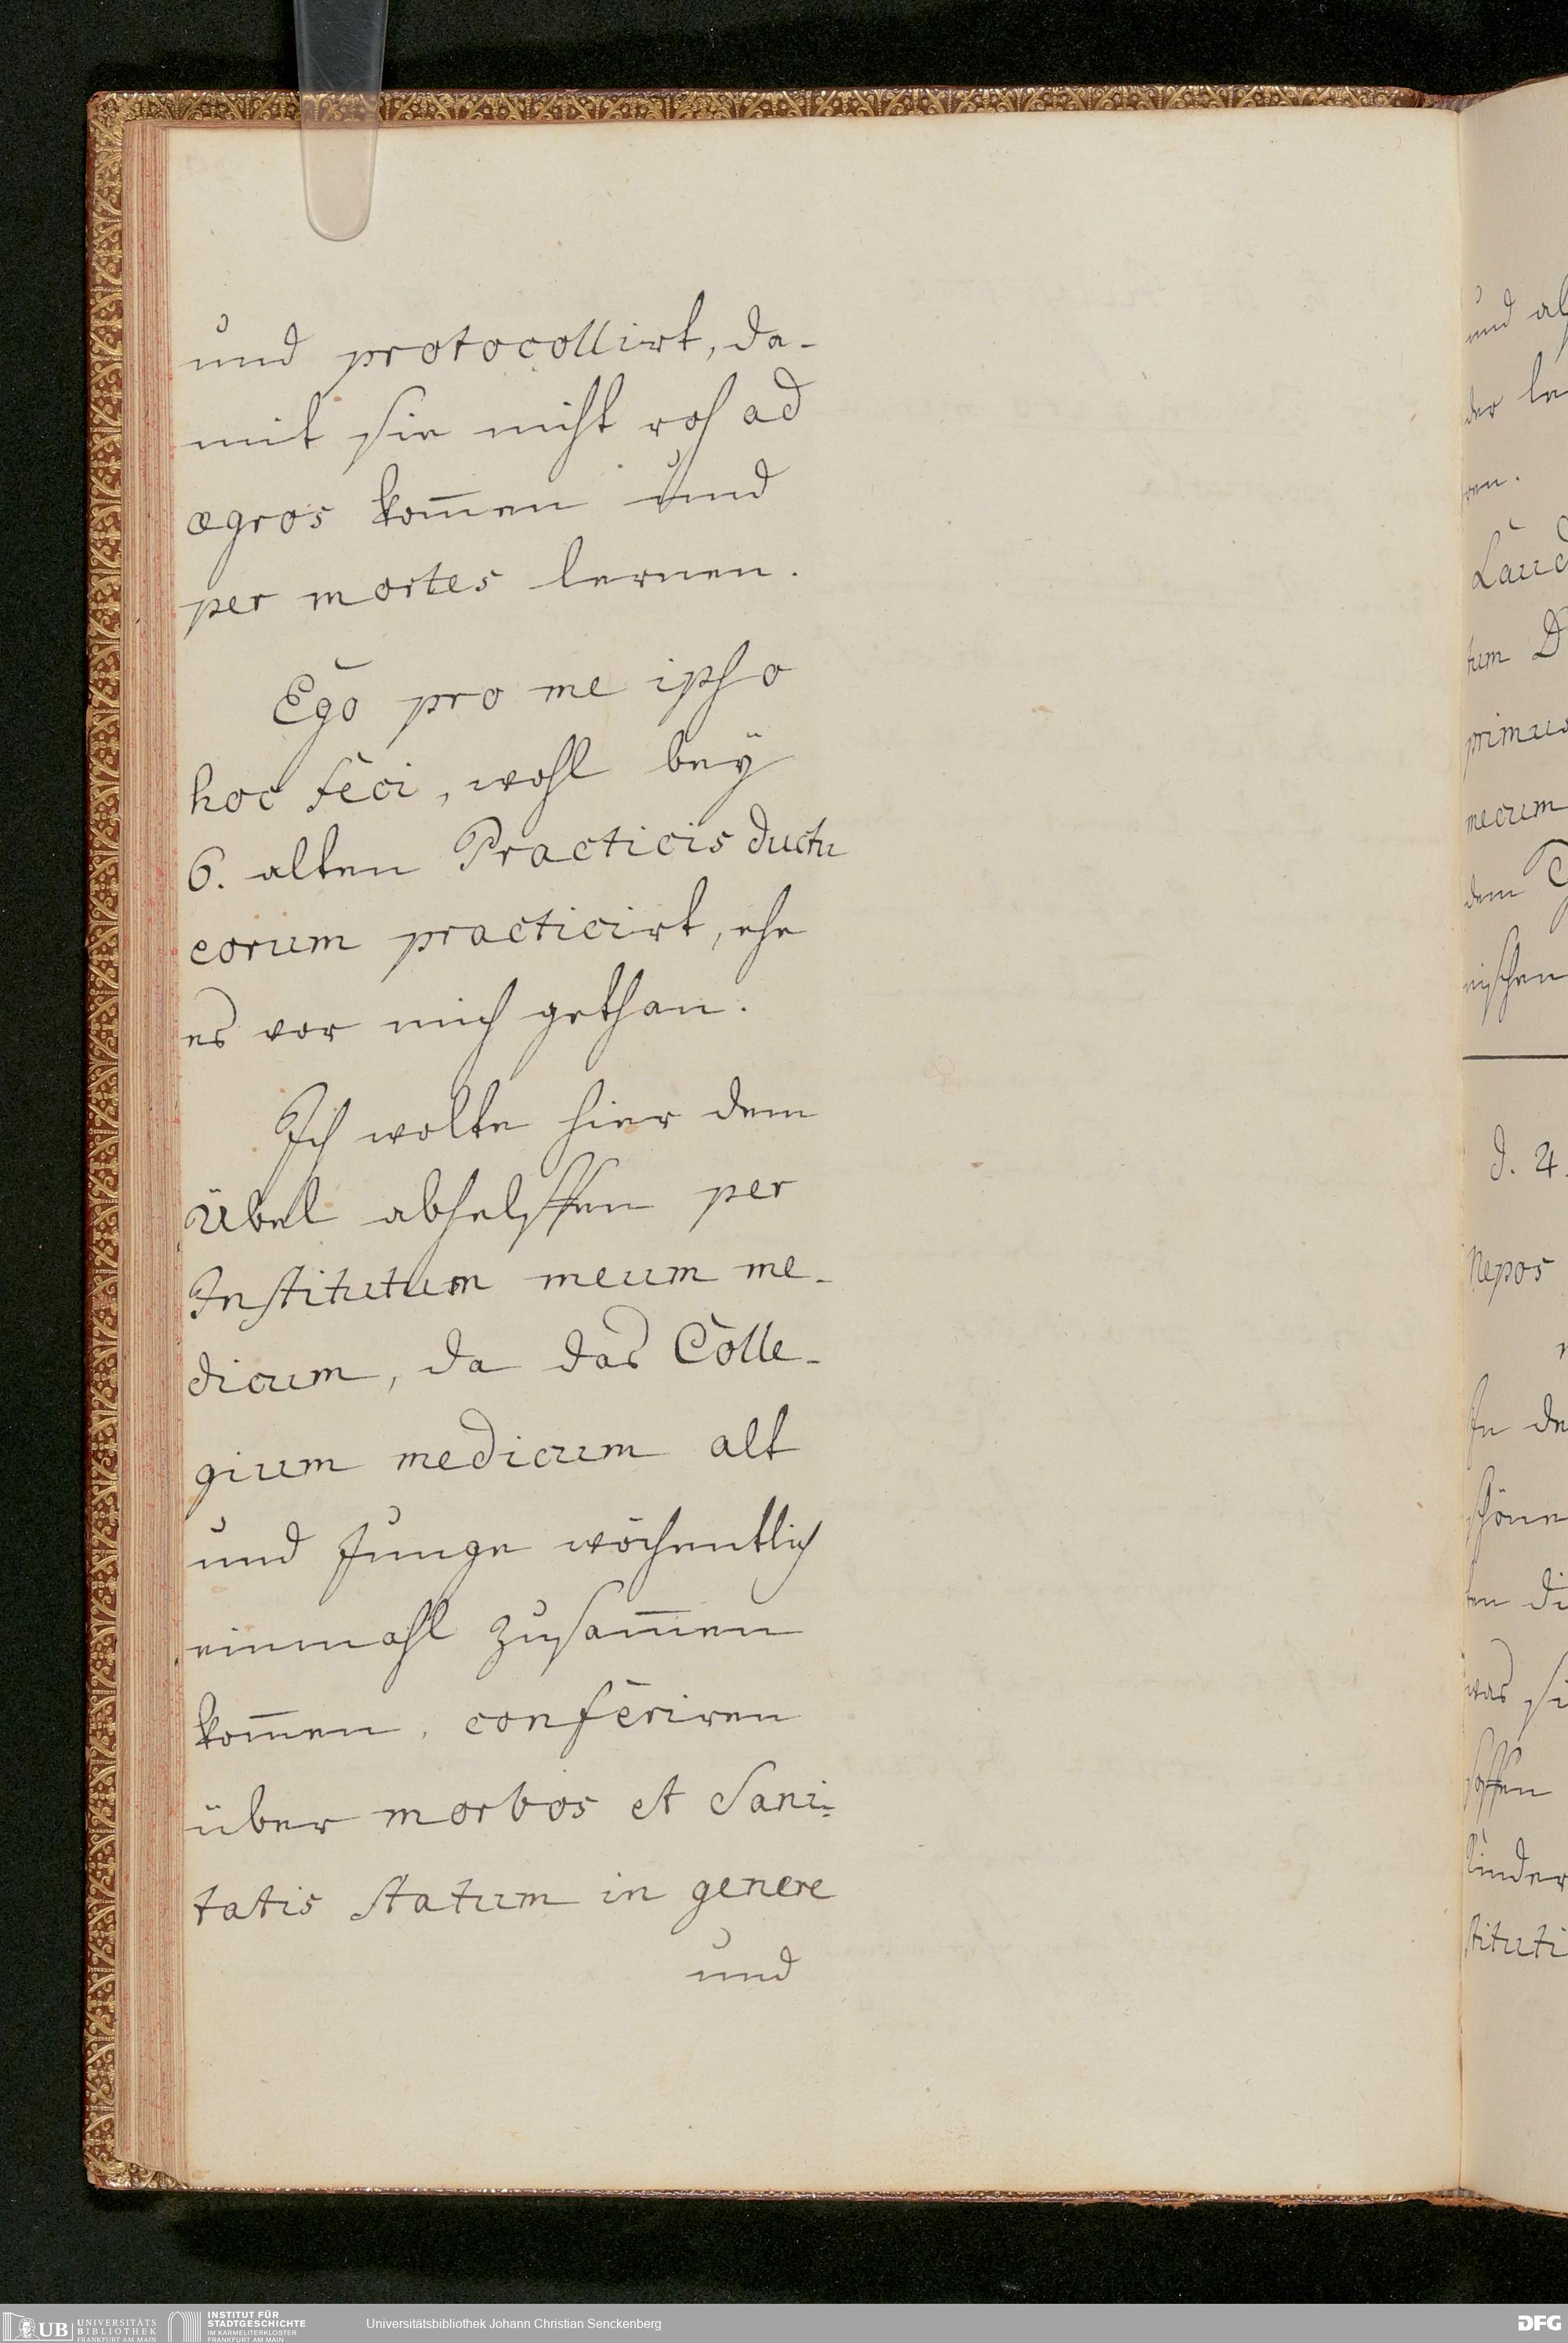 und protocollirt, da-
mit sie nicht roh ad
ægros kom̅en und
per mortes lernen.
Ego pro me ipso
hoc feci, wohl beÿ
6. alten Practicis ductu
eorum practicirt, ehe
es vor mich gethan.
Ich wolte hier dem
Übel abhelffen per
Institutum meum me-
dicum, da das Colle-
gium medicum alt
und Junge wöchentlich
einmahl zusam̅en
kom̅en, conferiren
über morbos et Sani-
tatis statum in genere
und
und
der
Laud
tum D
primus
mecum
dem
nischen
d. 4.
Nepos
In de
schöne
ten di
was si
soffen
Kinder
stituti
UB UNIVERSITÄTS BIBLIOTHEK FRANKFURT AM MAIN
INSTITUT FÜR STADTGESCHICHTE IM KARMELITERKLOSTER FRANKFURT AM MAIN
Universitätsbibliothek Johann Christian Senckenberg
DFG